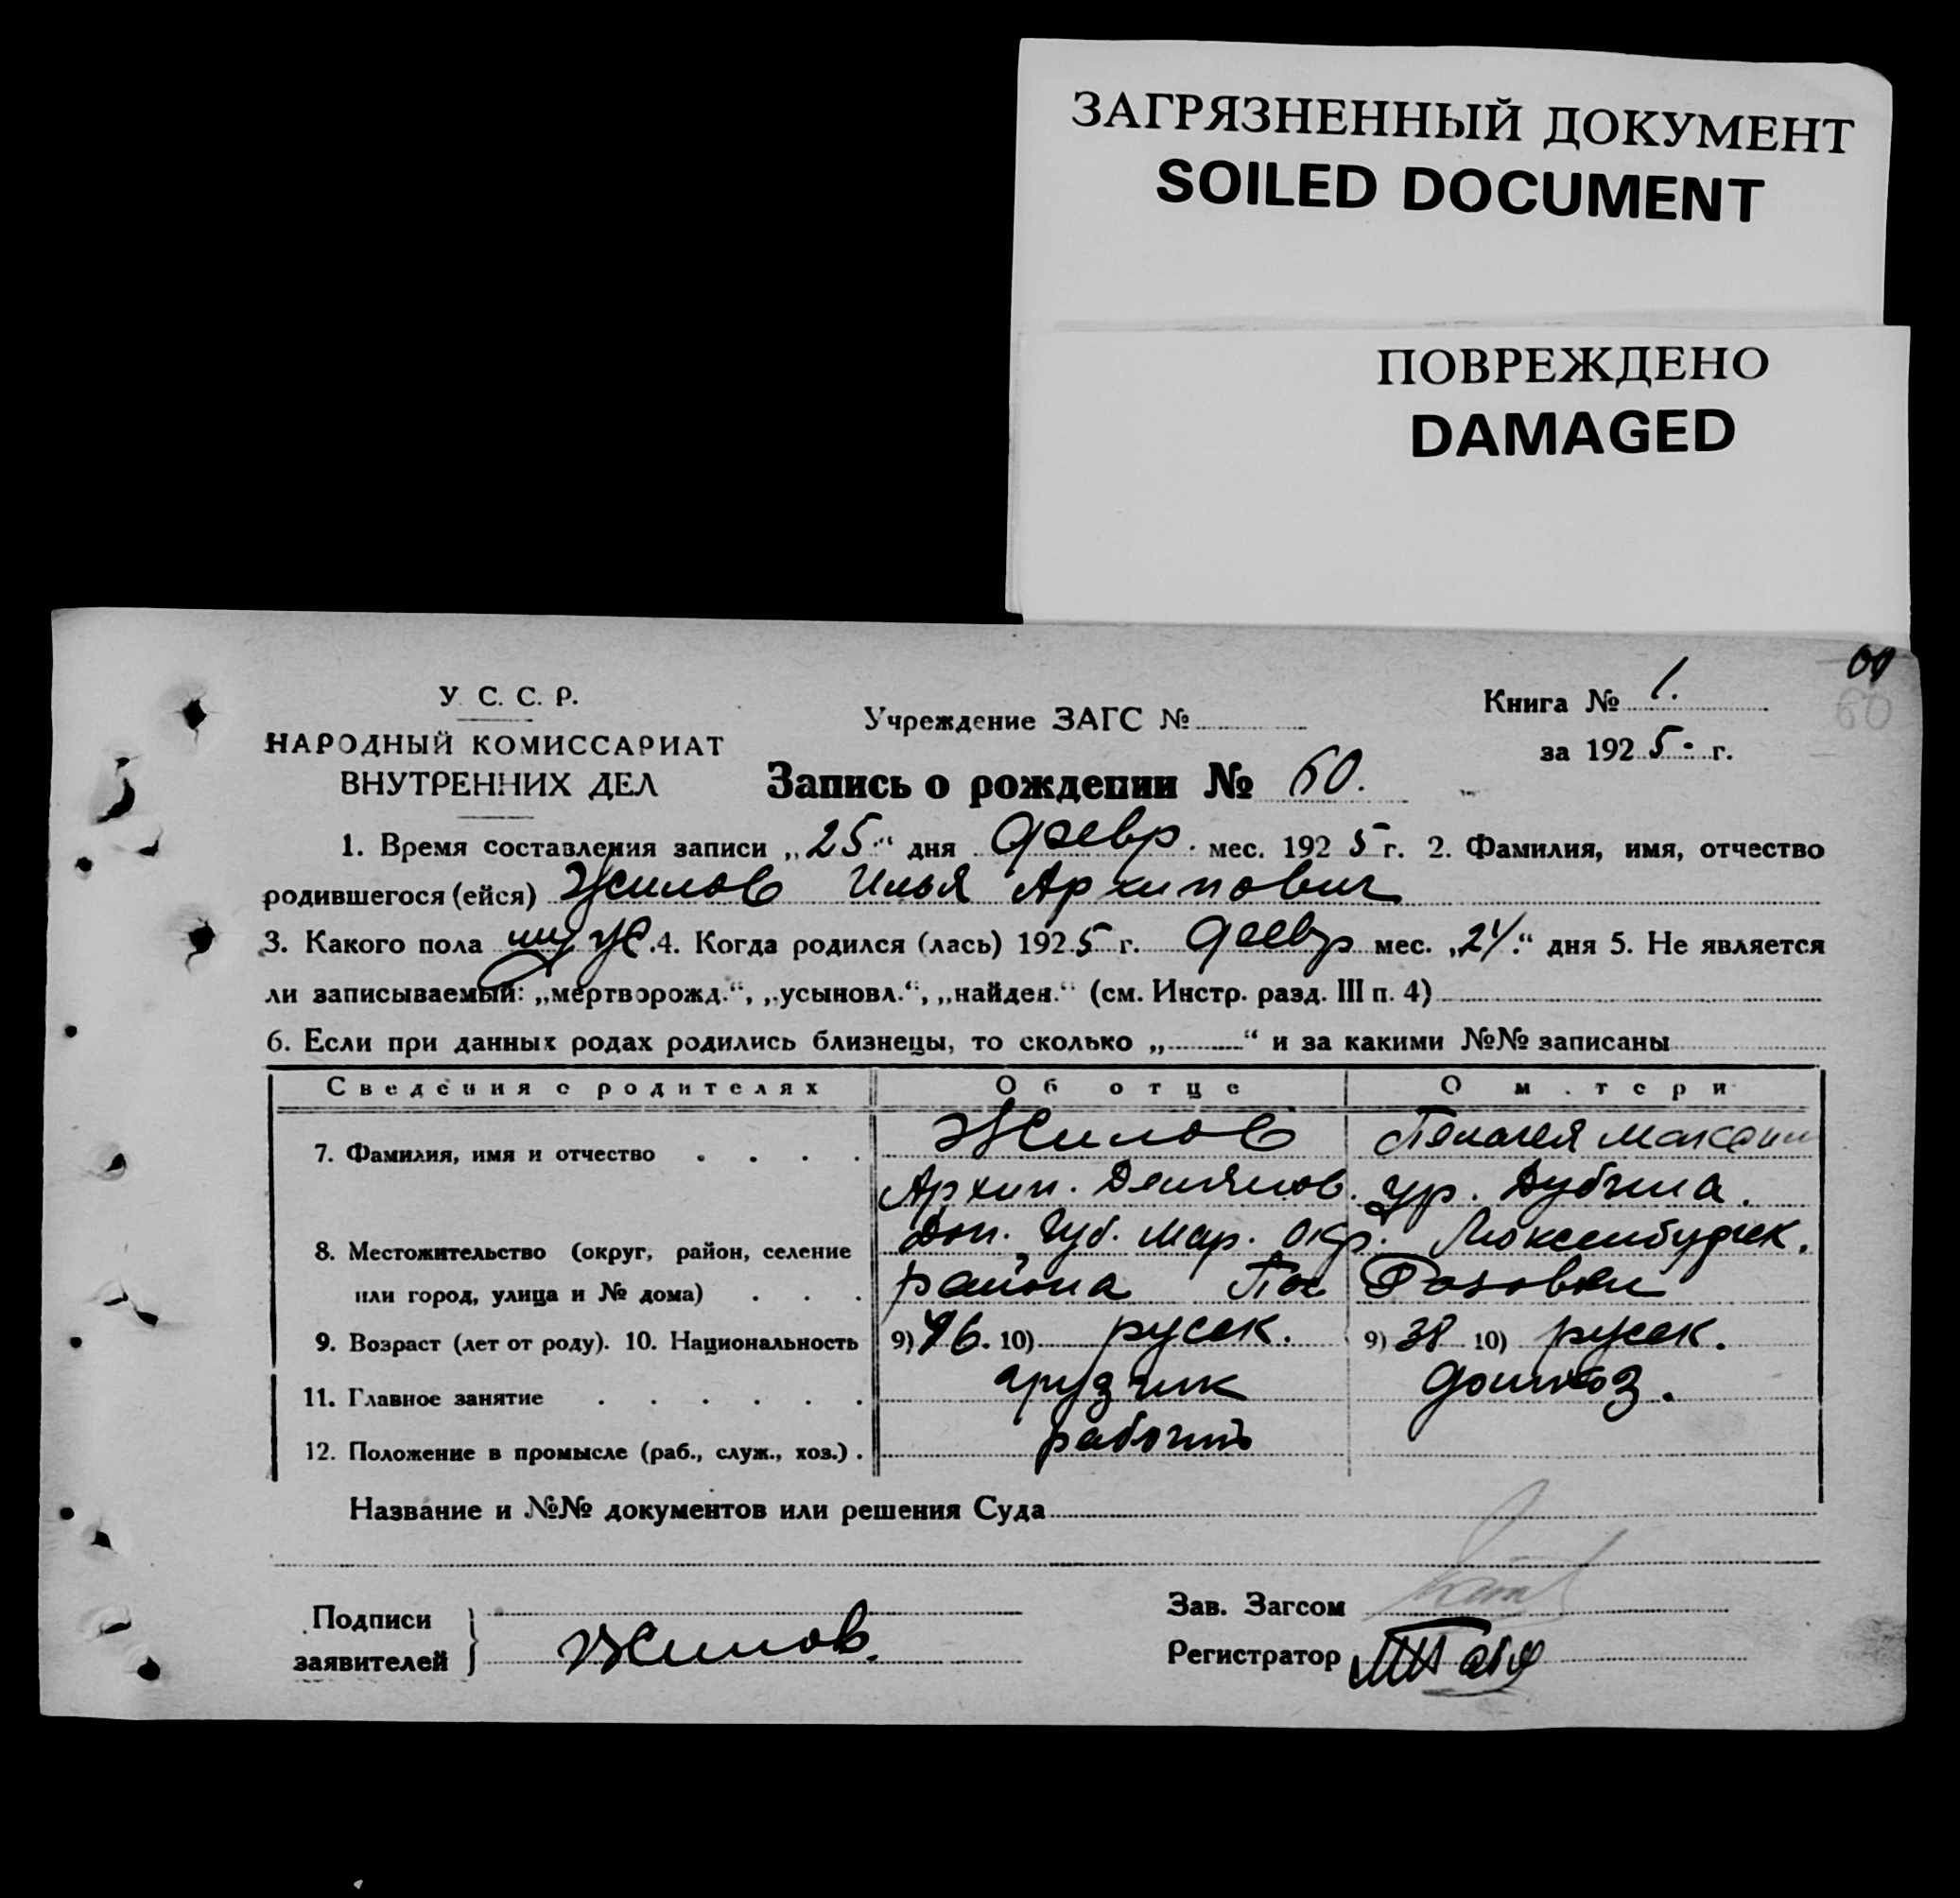 ЗАГРЯЗНЕННЫЙ ДОКУМЕНТ
SOILED DOCUMENT
ПОВРЕЖДЕНО
DAMAGED
60
У. С. С. Р.
НАРОДНЫЙ КОМИССАРИАТ
ВНУТРЕННИХ ДЕЛ
Учреждение ЗАГС №
Книга № 1.
за 1925 г.
Запись о рождении № 60.
1. Время составления записи „25“ дня февр. мес. 1925 г. 2. Фамилия, имя, отчество
родившегося (ейся) Жилов Илья Архипович
3. Какого пола муж. 4. Когда родился (лась) 1925 г. февр мес. „24“ дня 5. Не является
ли записываемый: „мертворожд.“, „усыновл.“, „найден.“ (см. Инстр. разд. III п. 4)
6. Если при данных родах родились близнецы, то сколько „ “ и за какими №№ записаны
Сведения о родителях Об отце О м.тери
7. Фамилия, имя и отчество . . . . Жилов Пелагея Максим
Архип. Демьянов. ур. Дубчила.
8. Местожительство (округ, район, селение Дон. Губ. Мар. Окр. Люксембургск.
или город, улица и № дома) . . . района Пос Розовки
9. Возраст (лет от роду). 10. Национальность 9) 46. 10) русск. 9) 38 10) русск.
11. Главное занятие . . . . . . грузчик домхоз.
12. Положение в промысле (раб., служ., хоз.) . рабочий
Название и №№ документов или решения Суда
Подписи
заявителей } Жилов.
Зав. Загсом
Регистратор